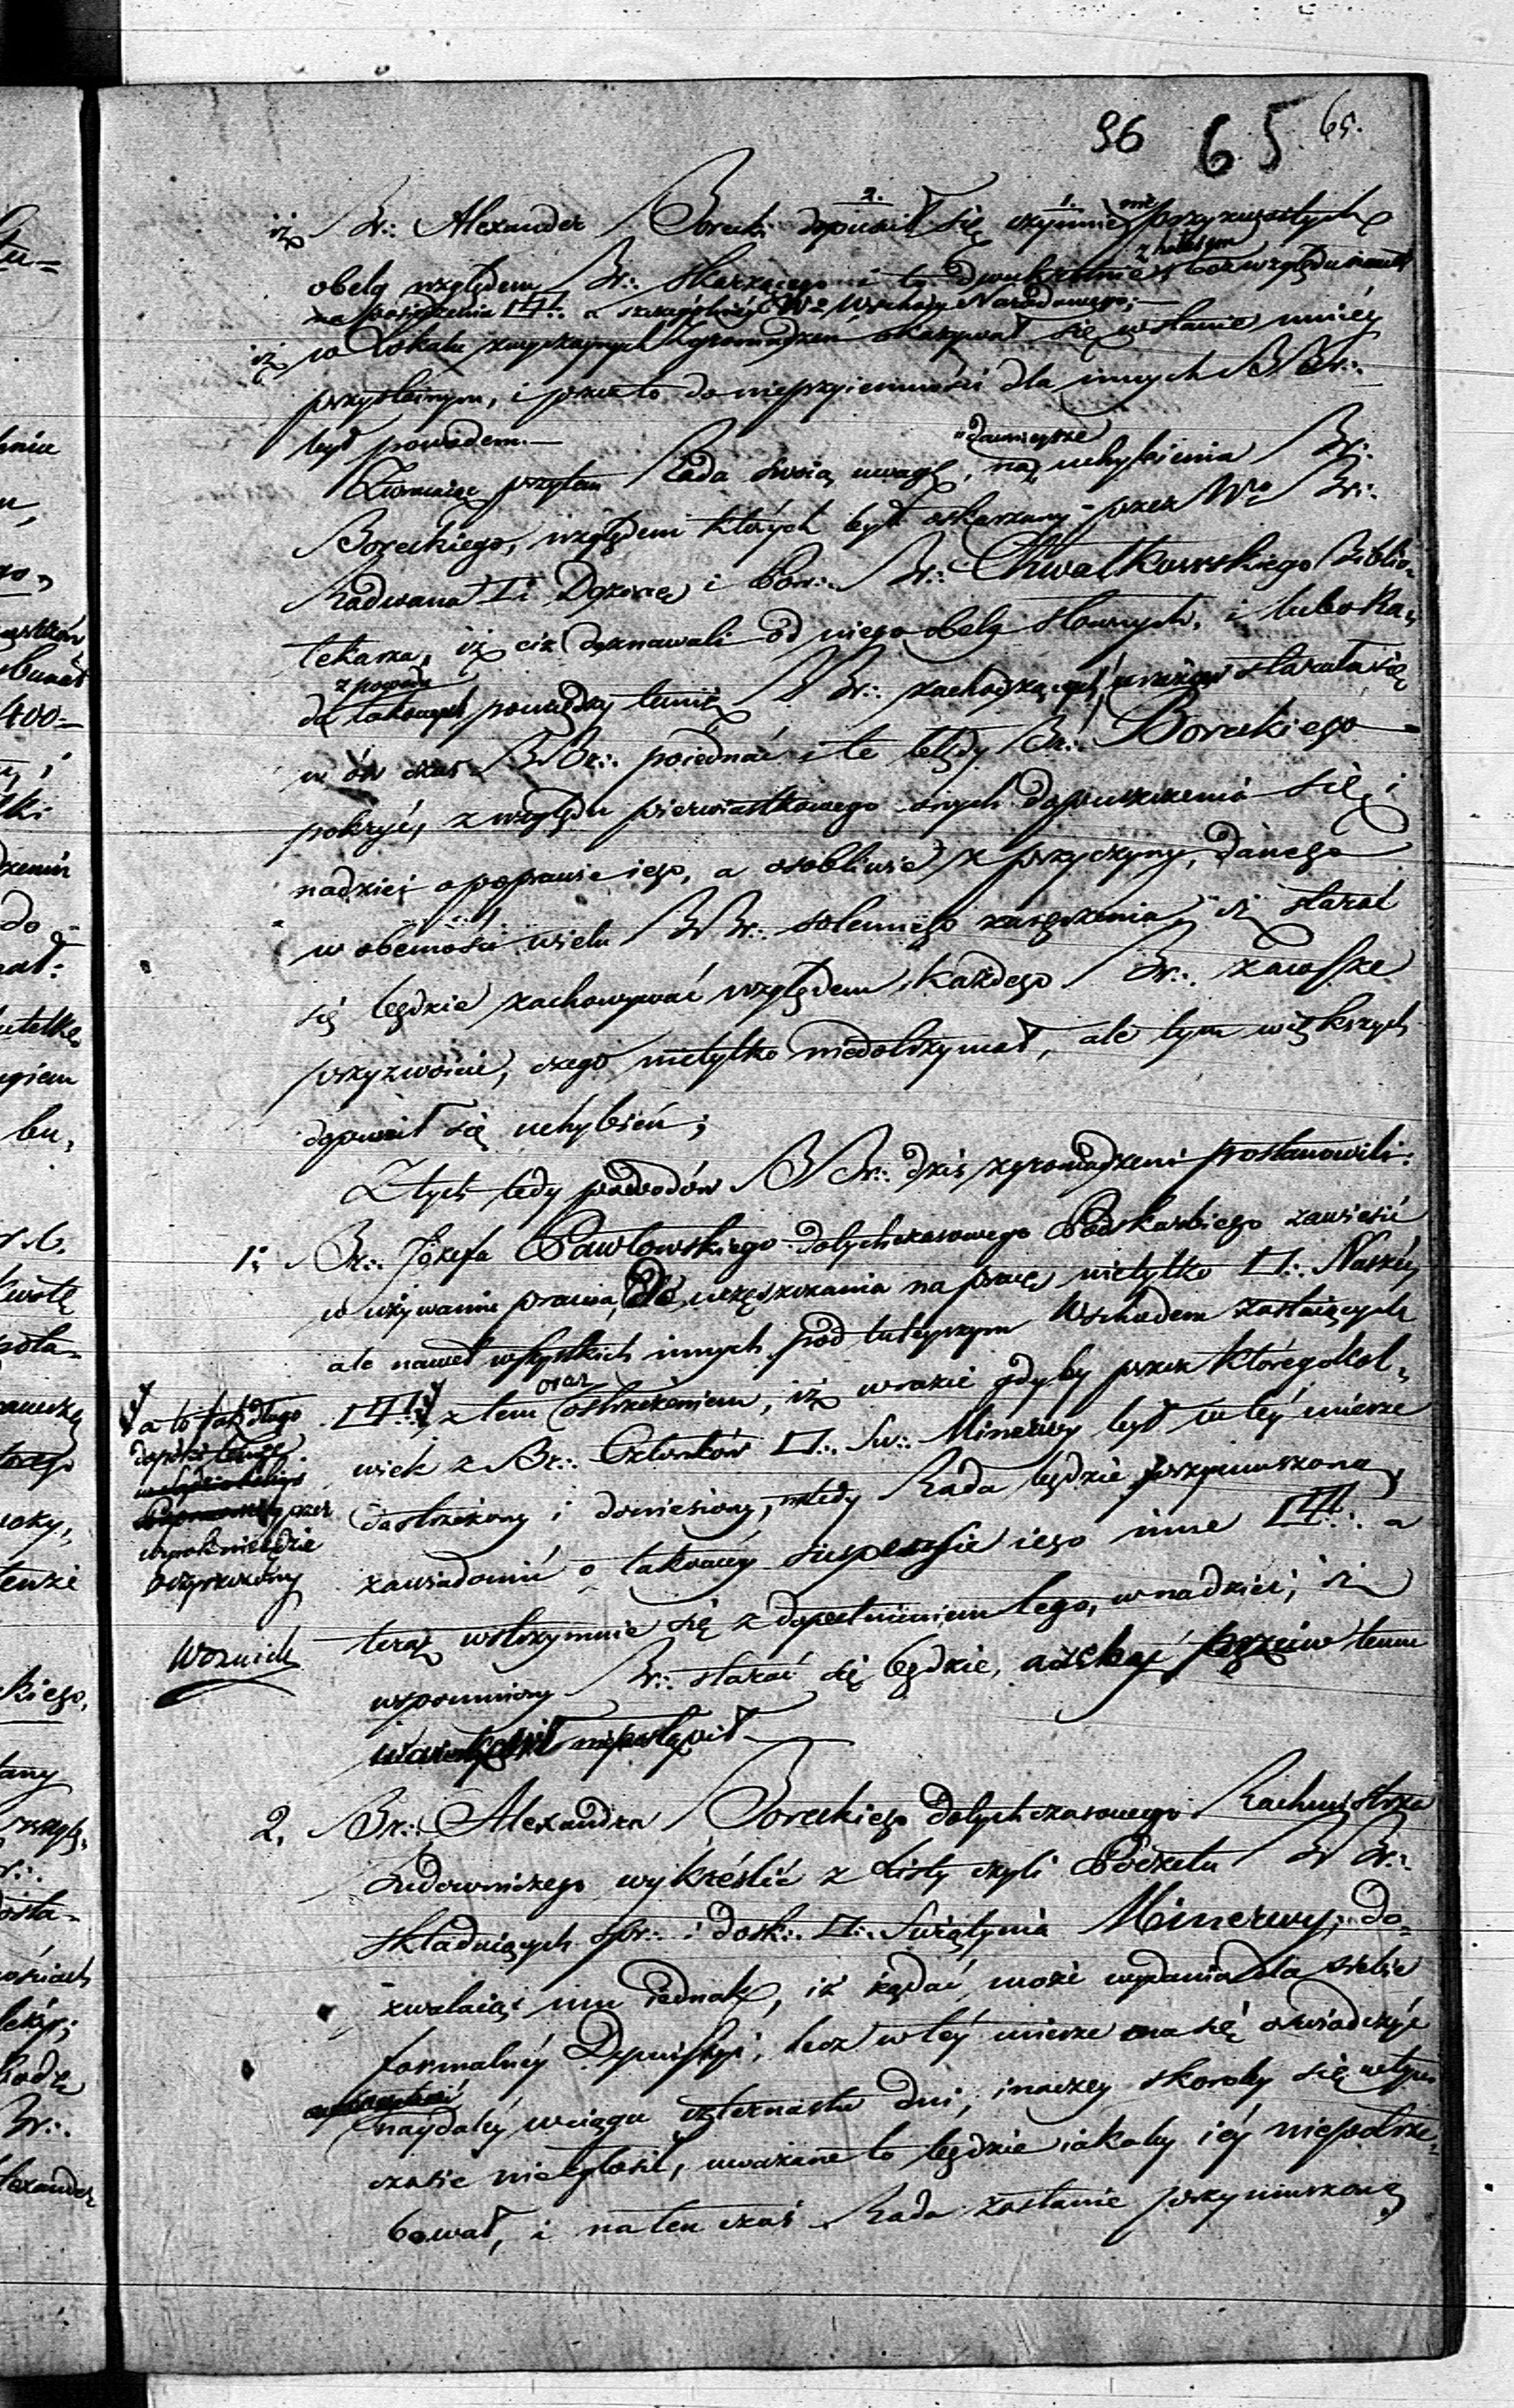 96 65 65.
2. 1. nie
iż Br∴ Alexander Borecki dopuścił się czynnie przyzwoitych
z hałasem
obelg względem Br∴ skarżącego i to dwukrotnie bez względu nawet
na posiedzenia a szczególniéj Wo Wschody Narodowego;—
iż w Lokalu zwyczaynych Zgromadzeń okazywał się w stanie mniéy
przystoinym, i przeto do nieprzyiemności dla innych BBr∴
był powodem.—
dawnieysze
Zwracaiąc przytem Rada swoią uwagę, na uchybienia Br∴
Boreckiego, względem których był oskarżany przez Wo Br∴
Radwana i Dozorcę i Pow∴ Br∴ Chwalkowskiego Biblio-
tekarza, iż ciż doznawali od niego obelg słownych, i lubo Ra-
z powodu
da takowych pomiędzy temiż BBr∴ zachodzących urazów starała się
w ów czas BBr∴ poiednać i te błędy Br∴ Boreckiego
pokryć, z względu pierwiastkowego onych dopuszczenia się i
nadziei o poprawie iego, a osobliwie z przyczyny, danego
w obecności wielu BBr∴ solennego zaręczenia, iż starać
się będzie zachowywać względem każdego Br∴ zawsze
przyzwoicie, czego nietylko niedotrzymał, ale tym większych
dopuścił się uchybień;
Z tych tedy powodów BBr∴ dziś zgromadzeni postanowili:
1: Br∴ Józefa Pawłowskiego dotychczasowego Podskarbiego zawiesić
w używaniu prawa, do uczęszczania na pracę nietylko □∴ Naszéy
ale nawet wszystkich innych pod tuteyszym Wschodem zostaiących
oraz
z tem ostrzeżeniem, iż w razie gdyby przez któregokol-
wiek z Br∴ Członków □∴ Św∴ Minerwy był w téy mierze
dostrzeżony i doniesiony, wtedy Rada będzie przymuszoną,
zawiadomić o takowéy suspensie iego inne a
teraz wstrzymuie się z dopełnieniem tego, w nadziei, iż
wspomniony Br∴ starać się będzie, ażeby przeciw temu
niepostąpił
a to tak długo
dopóki
przez
wyrok niebędzie
Woznicki
2. Br∴ Alexandra Boreckiego dotychczasowego Rachmistrza
Budowniczego wykréślić z Listy czyli Pocztu BBr∴
składaiących Spr∴ i dosk∴ □∴ Świątynia Minerwy; do-
zwalaiąc mu iednak, iż żądać może wydania dla siebie
formalnéy Dymissyi, lecz w téy mierze ma się oświadczyć
naydaléy w ciągu czternastu dni, inaczéy skoroby się w tym
czasie niezgłosił, uważane to będzie iakoby iéy niepotrze-
bował, i na ten czas Rada zostanie przymuszoną